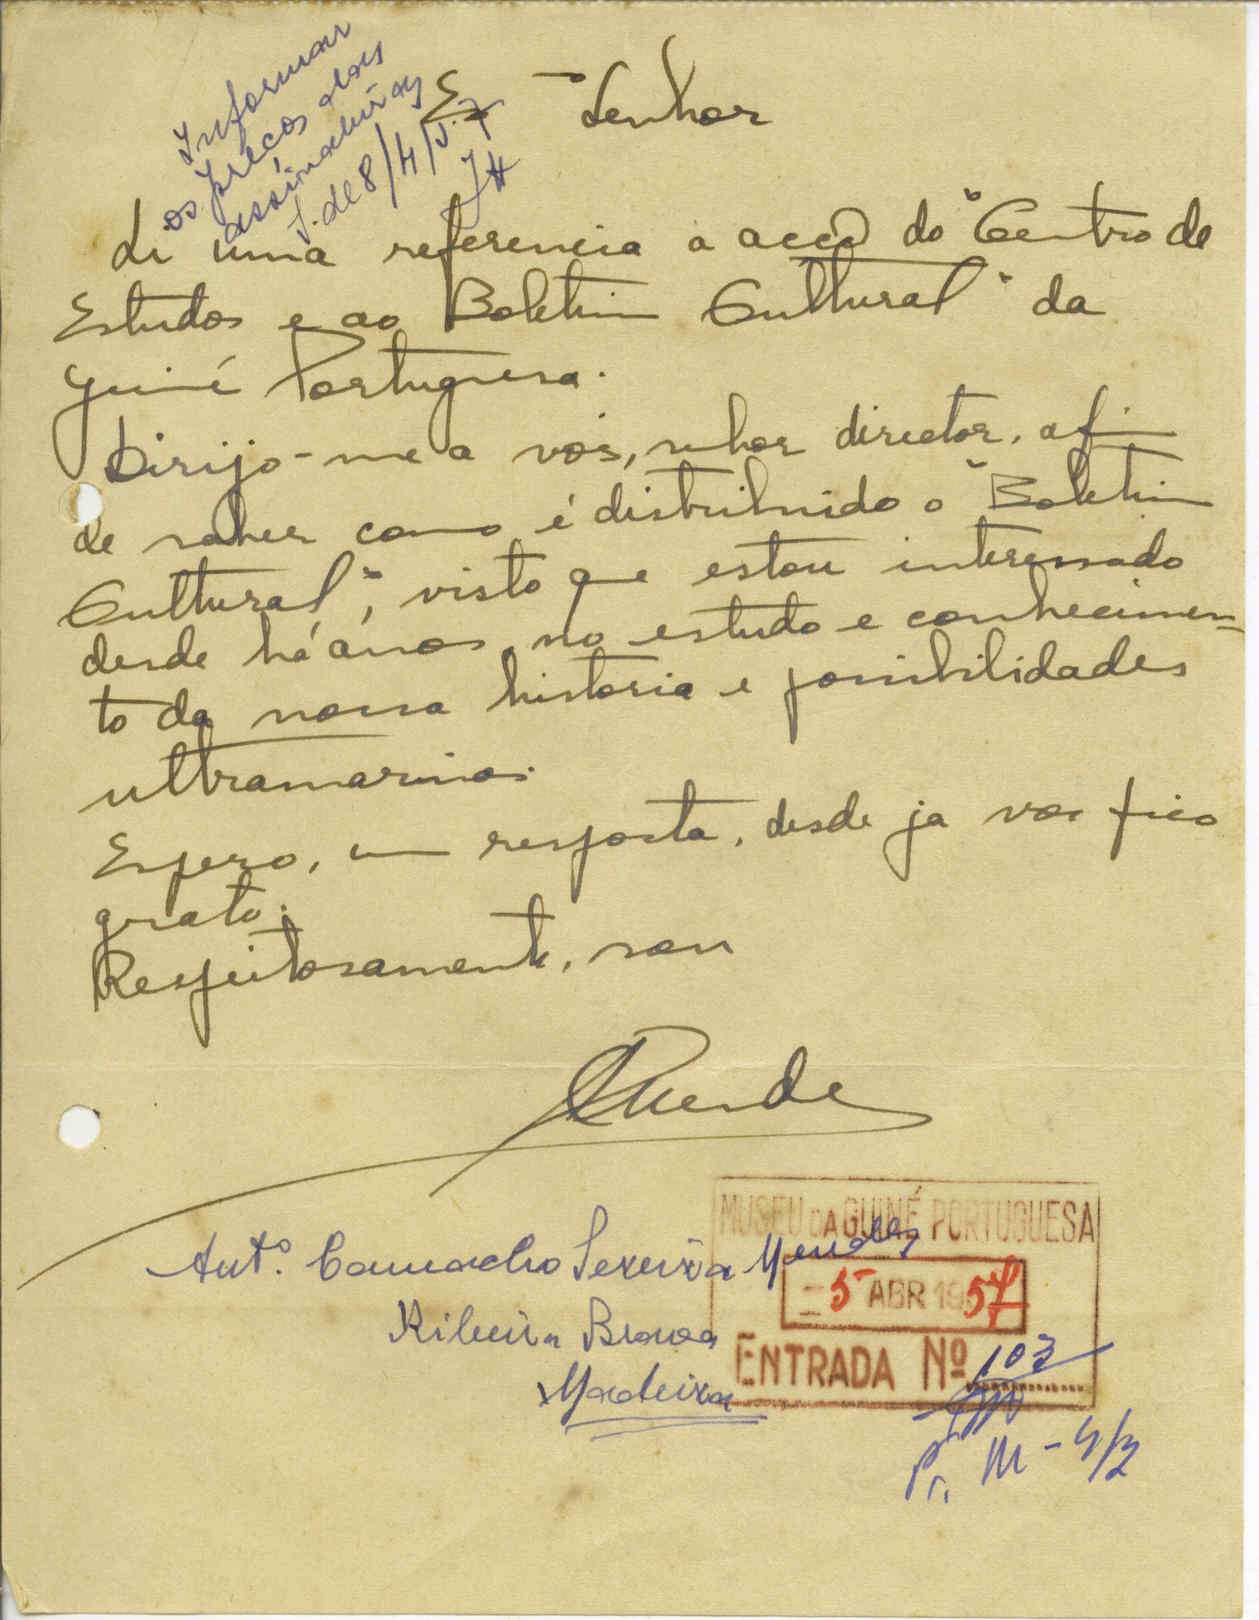 Informar
os preços das
assinaturas
8/4/57
Exº Senhor
Li uma referencia a acção do "Centro de
Estudos e ao Boletim Cultural" da
Guiné Portuguesa.
Dirijo-me a vós, senhor director, afim
de saber como é distribuido o "Boletim
Cultural", visto que estou interessado
desde há anos, no estudo e conhecimen-
to da nossa historia e possibilidades
ultramarinas.
Espero, em resposta, desde ja vos fico
grato.
Respeitosamente, sou
Mende
MUSEU DA GUINÉ PORTUGUESA
Antº. Camacho Teixeira Mendes
-5 ABR 1957
Ribeira Brava
ENTRADA Nº 103
Madeira
Pr. M - 4/2